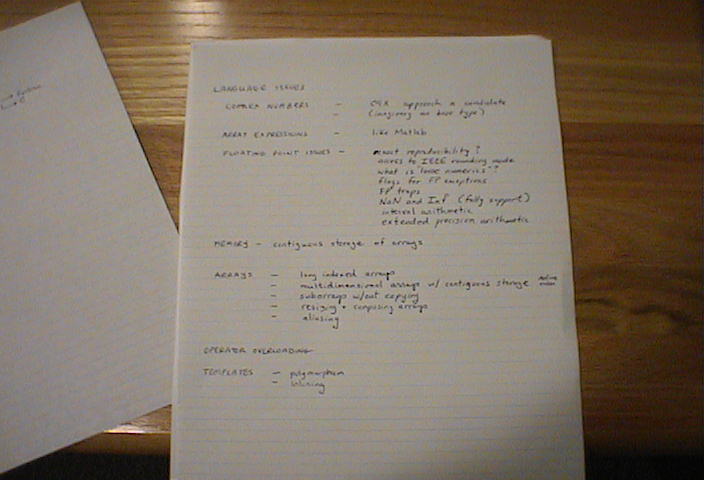 LANGUAGE ISSUES
COMPLEX NUMBERS - C9X approach a candidate
- (imaginary as base type)
ARRAY EXPRESSIONS - like Matlab
FLOATING POINT ISSUES - exact reproducibility?
access to IEEE rounding mode
what is "loose numerics"?
flags for FP exceptions
FP traps
NaN and Inf (fully support)
interval arithmetic
extended precision arithmetic
MEMORY - contiguous storage of arrays
ARRAYS - long indexed arrays
- multidimensional arrays w/ contiguous storage
- subarrays w/out copying
- resizing + composing arrays
- aliasing
OPERATOR OVERLOADING
TEMPLATES - polymorphism
- inlining